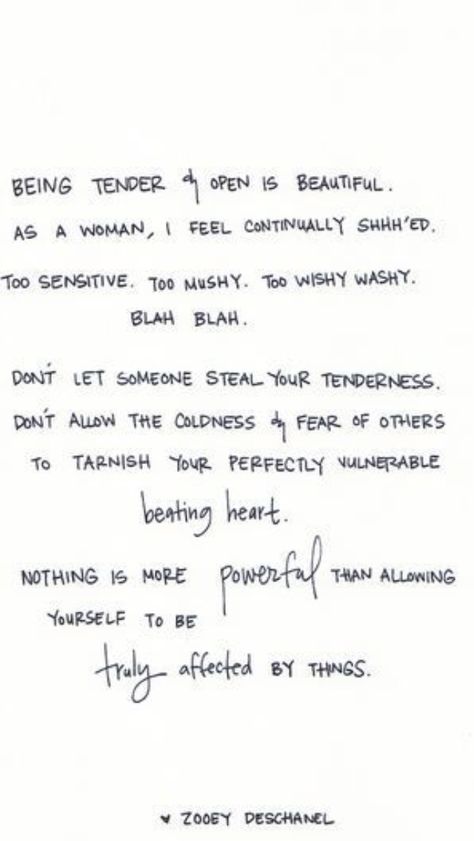 BEING TENDER & OPEN IS BEAUTIFUL.
AS A WOMAN, I FEEL CONTINUALLY SHHH'ED.
TOO SENSITIVE. TOO MUSHY. TOO WISHY WASHY.
BLAH BLAH.
DON'T LET SOMEONE STEAL YOUR TENDERNESS.
DON'T ALLOW THE COLDNESS & FEAR OF OTHERS
TO TARNISH YOUR PERFECTLY VULNERABLE
beating heart.
NOTHING IS MORE powerful THAN ALLOWING
YOURSELF TO BE
truly affected BY THINGS.
♥ ZOOEY DESCHANEL